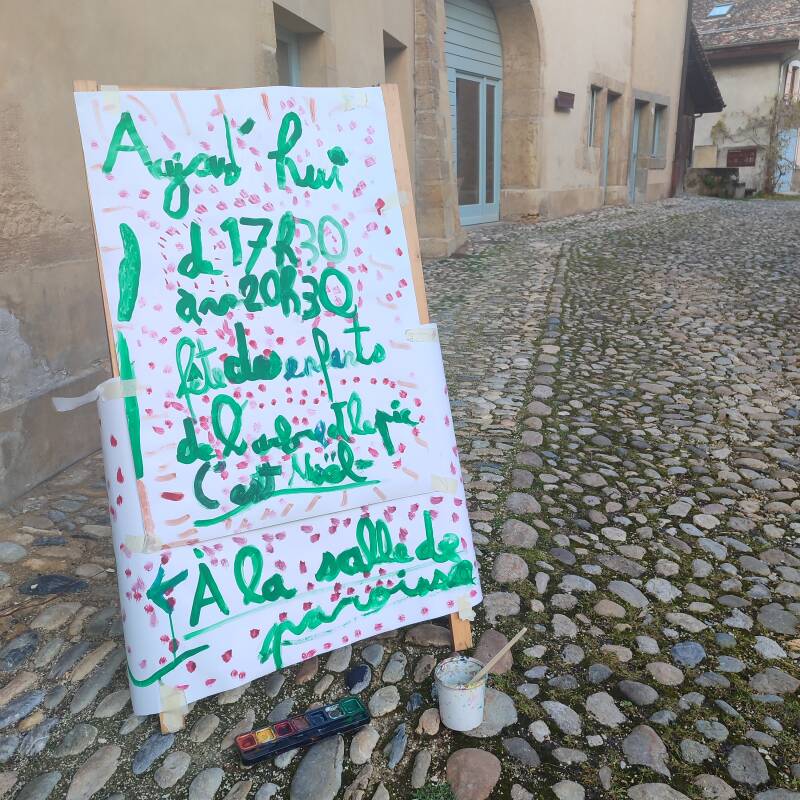 Aujourd'hui
de 17h30
à 20h30
fête des enfants
de l'arbre et le pic
C'est Noël
À la salle de
paroisse